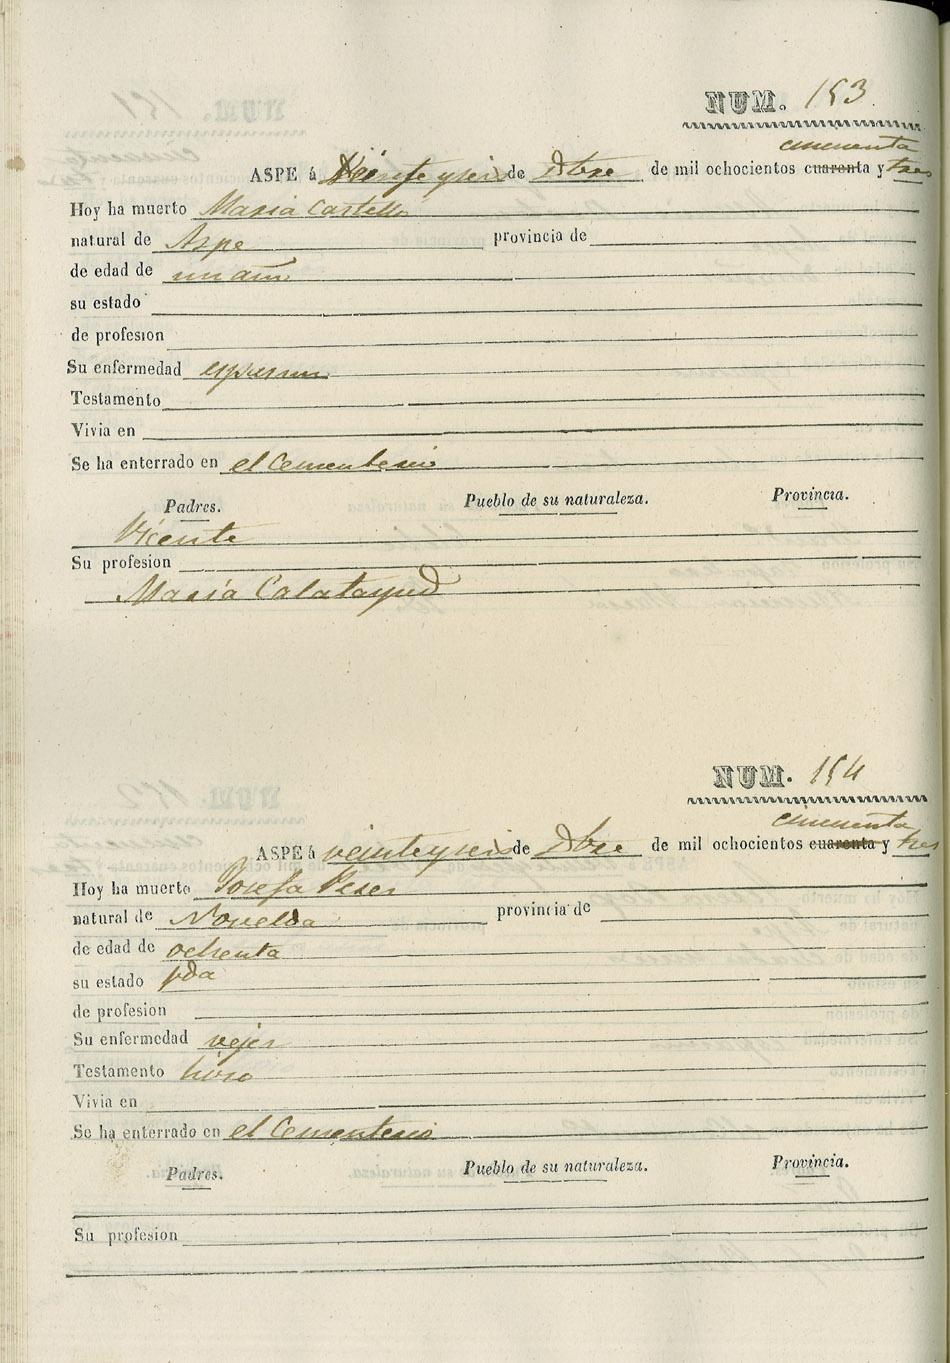 NUM. 153
cincuenta
ASPE á Veinte y seis de Dbre de mil ochocientos cuarenta y tres
Hoy ha muerto Maria Castelló
natural de Aspe provincia de
de edad de un año
su estado
de profesion
Su enfermedad espasmo
Testamento
Vivia en
Se ha enterrado en el Cementerio
Padres. Pueblo de su naturaleza. Provincia.
Vicente
Su profesion
Maria Calatayud
NUM. 154
cincuenta
ASPE á veinte y seis de Dbre de mil ochocientos cuarenta y tres
Hoy ha muerto Josefa Perer
natural de Novelda provincia de
de edad de ochenta
su estado
de profesion
Su enfermedad vejez
Testamento hizo
Vivia en
Se ha enterrado en el Cementerio
Padres. Pueblo de su naturaleza. Provincia.
Su profesion